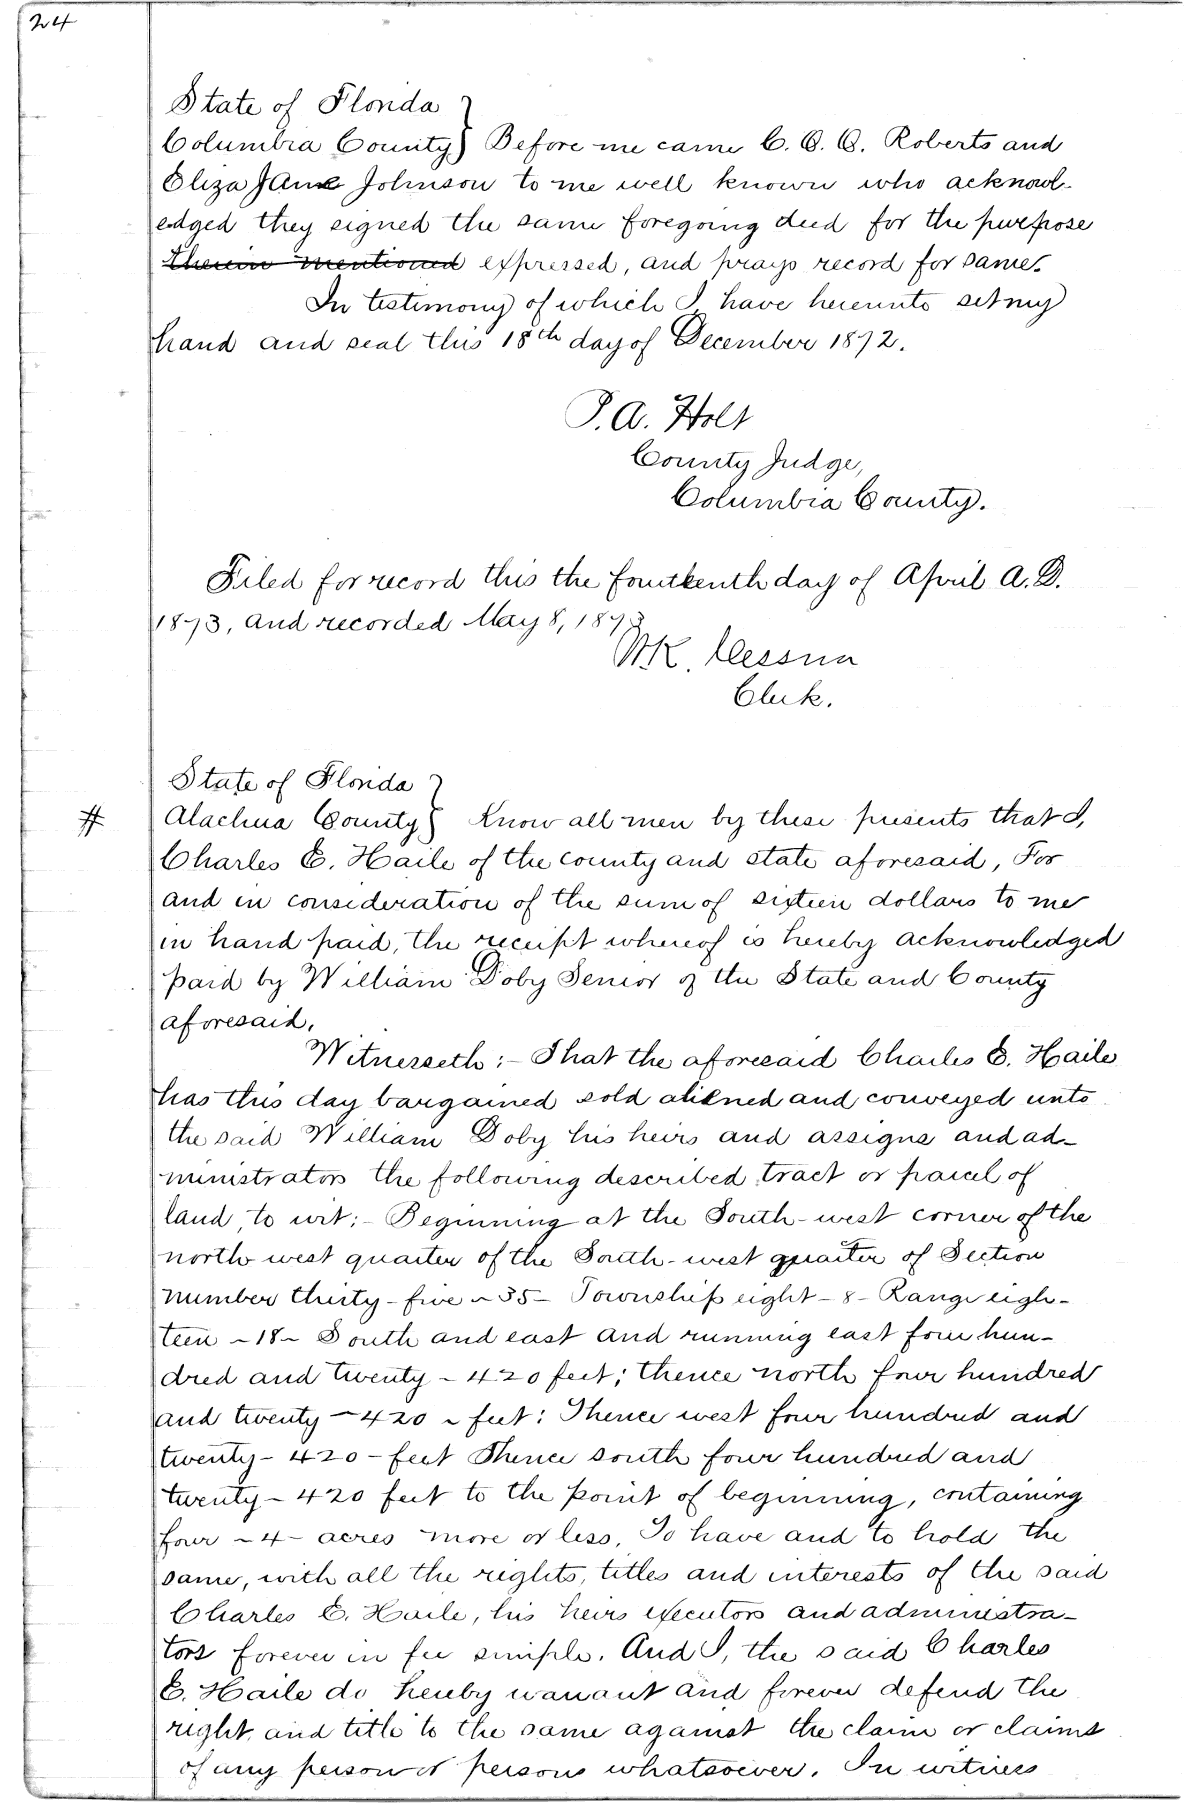 24
State of Florida }
Columbia County } Before me came C. C. C. Roberts and
Eliza Jane Johnson to me well known who acknowl-
edged they signed the same foregoing deed for the purpose
therein mentioned expressed, and prays record for same.
In testimony of which I have hereunto set my
hand and seal this 18th day of December 1872.
T. A. Holt
County Judge,
Columbia County.
Filed for record this the fourteenth day of April A.D.
1873, and recorded May 8, 1873
W.K. Cessna
Clerk.
State of Florida }
# Alachua County } Know all men by these presents that I,
Charles E. Haile of the county and state aforesaid, For
and in consideration of the sum of sixteen dollars to me
in hand paid, the receipt whereof is hereby acknowledged
paid by William Doby Senior of the State and County
aforesaid,
Witnesseth:- That the aforesaid Charles E. Haile
has this day bargained sold aliened and conveyed unto
the said William Doby his heirs and assigns and ad-
ministrators the following described tract or parcel of
land, to wit:- Beginning at the South-west corner of the
north west quarter of the South-west quarter of Section
number thirty-five - 35 - Township eight - 8 - Range eigh-
teen - 18 - South and east and running east four hun-
dred and twenty - 420 feet; thence north four hundred
and twenty - 420 - feet: Thence west four hundred and
twenty - 420 - feet Thence south four hundred and
twenty - 420 feet to the point of beginning, containing
four - 4 - acres more or less, To have and to hold the
same, with all the rights, titles and interests of the said
Charles E. Haile, his heirs executors and administra-
tors forever in fee simple. And I, the said Charles
E. Haile do hereby warrant and forever defend the
right and title to the same against the claim or claims
of any person or persons whatsoever. In witness